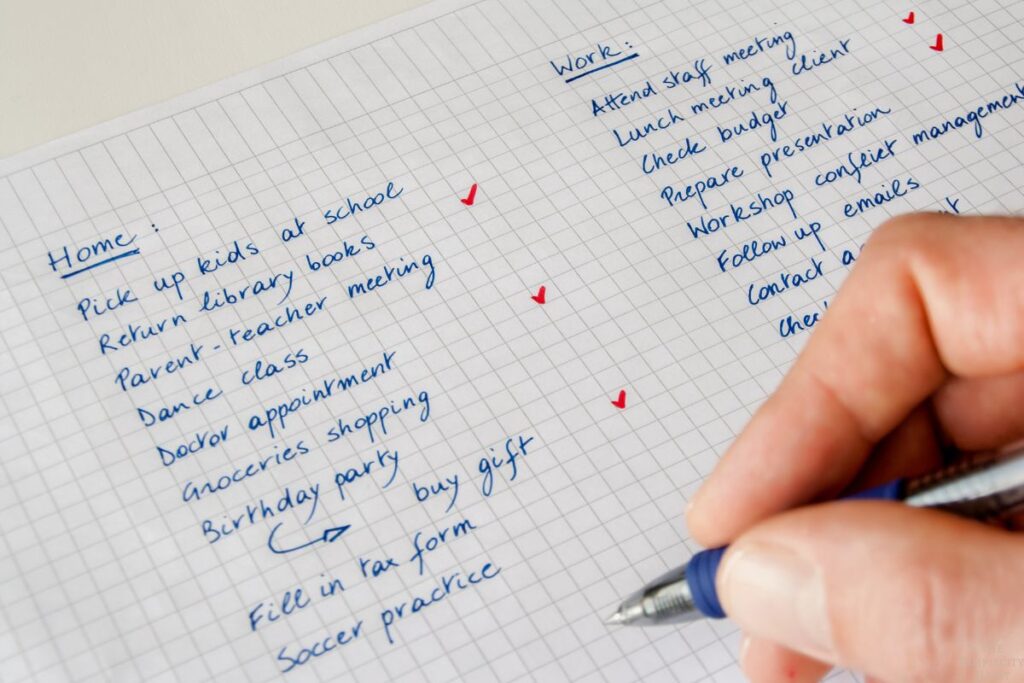 Home:
Pick up kids at school
Return library books
Parent-teacher meeting
Dance class
Doctor appointment
Groceries shopping
Birthday party
buy gift
Fill in tax form
Soccer practice
Work:
Attend staff meeting
Lunch meeting client
Check budget
Prepare presentation
Workshop conflict management
Follow up emails
Contact